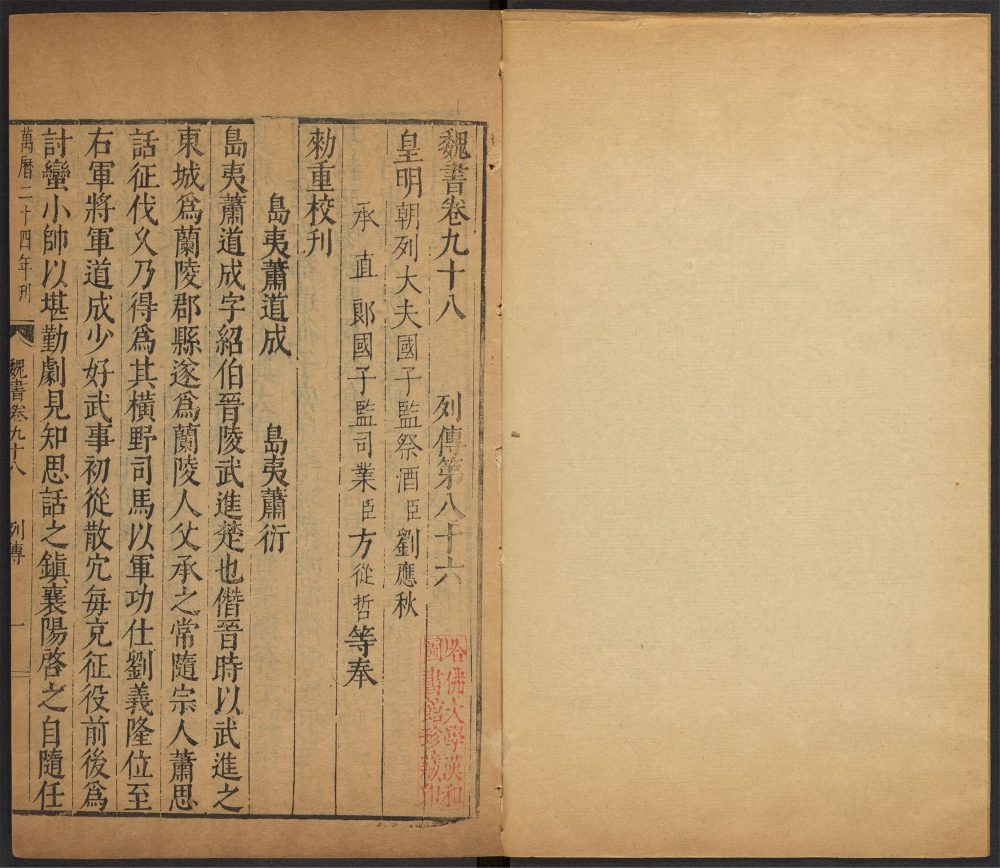 魏書卷九十八 列傳第八十六
皇明朝列大夫國子監祭酒臣劉應秋
承直郎國子監司業臣方從哲等奉
勑重校刊
島夷蕭道成 島夷蕭衍
島夷蕭道成字紹伯晉陵武進楚也僭晉時以武進之
東城爲蘭陵郡縣遂爲蘭陵人父承之常隨宗人蕭思
話征伐久乃得爲其橫野司馬以軍功仕劉義隆位至
右軍將軍道成少好武事初從散宂每充征役前後爲
討蠻小帥以堪勤劇見知思話之鎭襄陽啓之自隨任
萬曆二十四年刋
魏書卷九十八 列傳 一
哈佛大學漢和
圖書館珍藏印